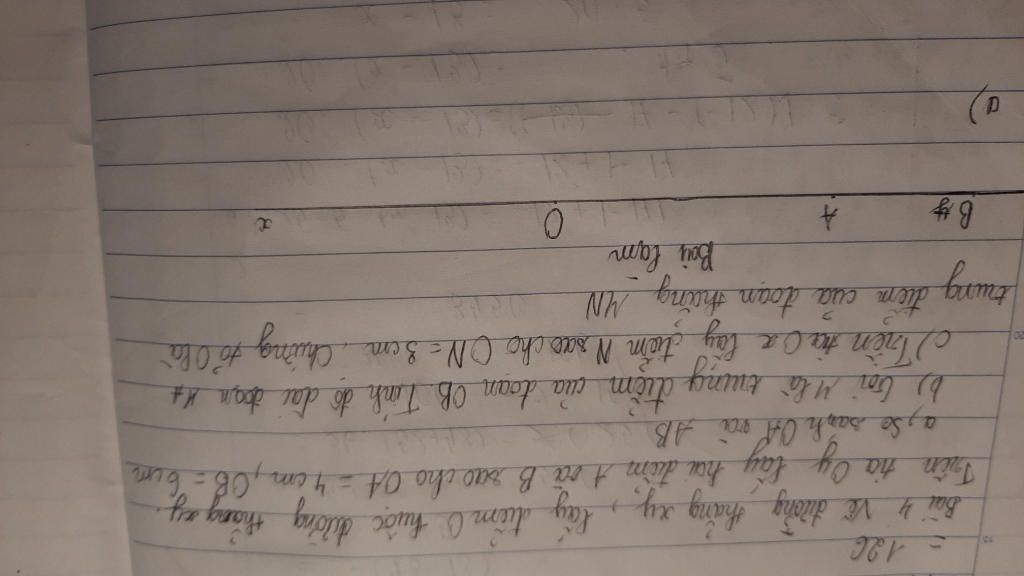 = 126
Bài 4 Vẽ đường thẳng xy, lấy điểm O thuộc đường thẳng xy.
Trên tia Oy lấy hai điểm A và B sao cho OA = 4 cm, OB = 6 cm
a, So sanh OA và AB
b) Gọi M là trung điểm của đoạn OB. Tính độ dài đoạn MA
c) Trên tia Ox lấy điểm N sao cho ON = 3 cm. Chứng tỏ O là
trung điểm của đoạn thẳng MN
Bài làm
B y A O x
a)